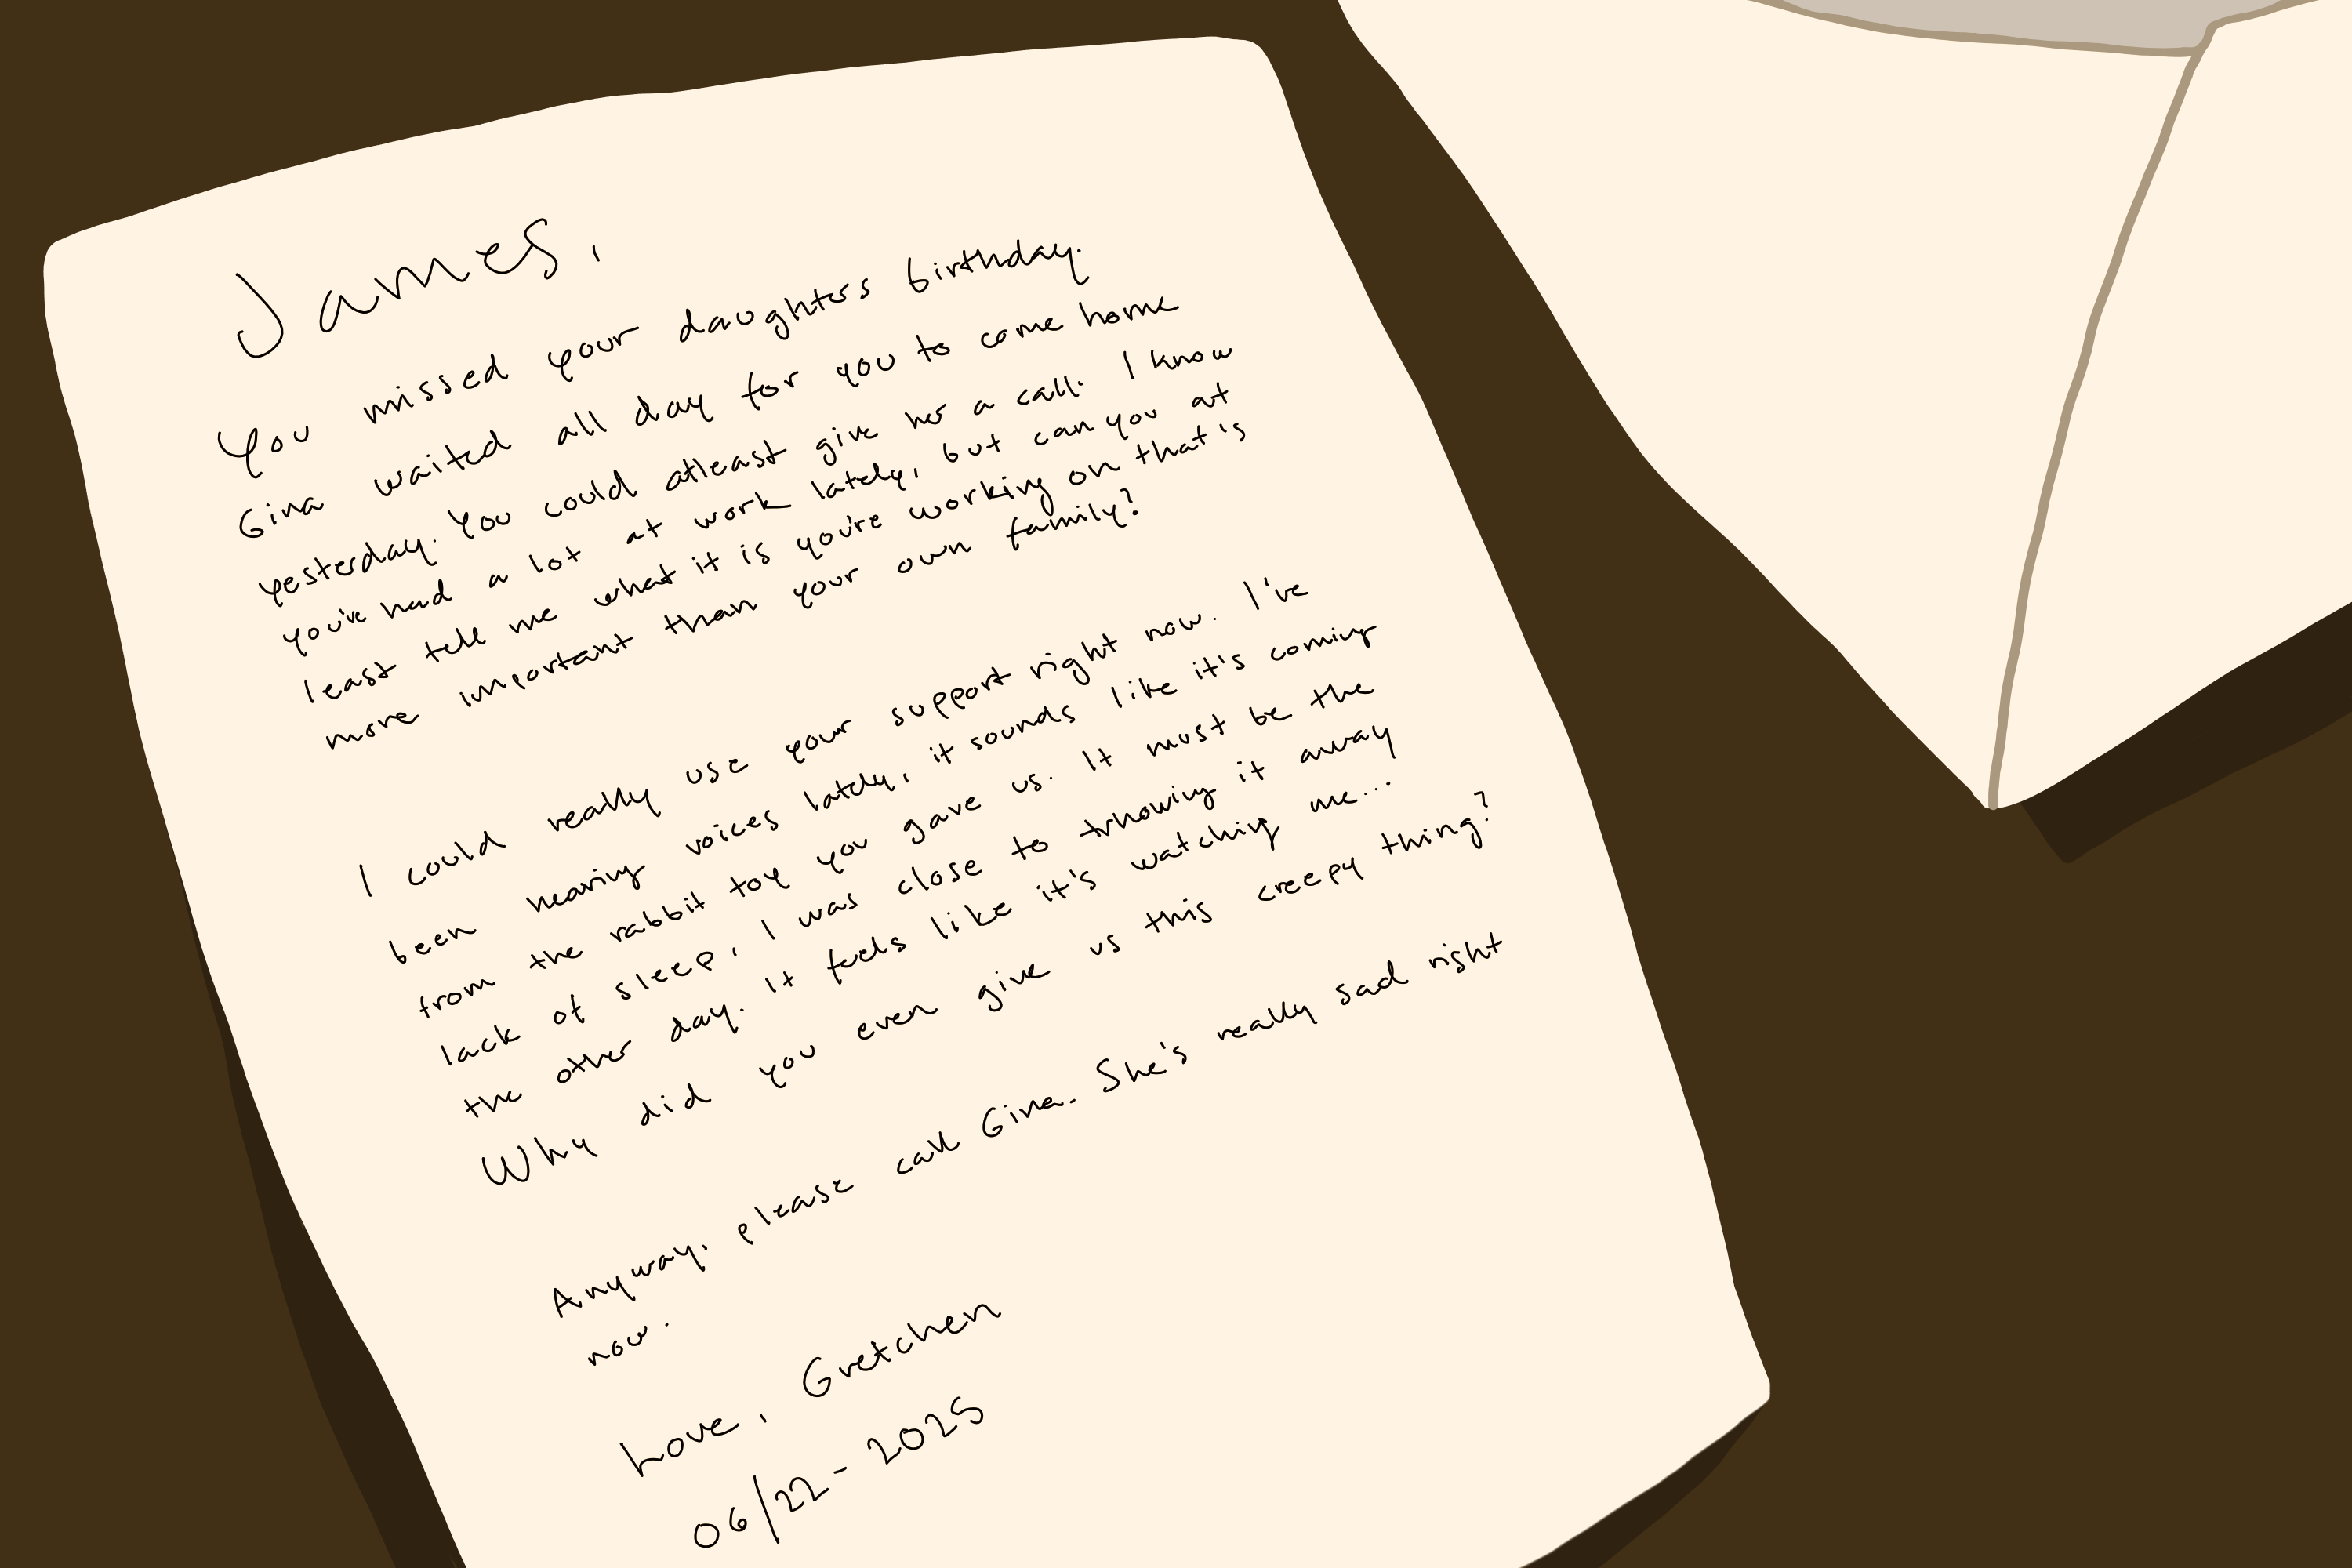 James,
You missed your daughters birthday.
Gina waited all day for you to come home
yesterday. You could atleast give her a call. I know
you've had a lot at work lately, but can you at
least tell me what it is you're working on that's
more important than your own family?
I could really use your support right now. I've
been hearing voices lately, it sounds like it's coming
from the rabbit toy you gave us. It must be the
lack of sleep, I was close to throwing it away
the other day. It feels like it's watching me...
Why did you even give us this creepy thing?
Anyway, please call Gina. She's really sad right
now.
Love, Gretchen
06/22-2025